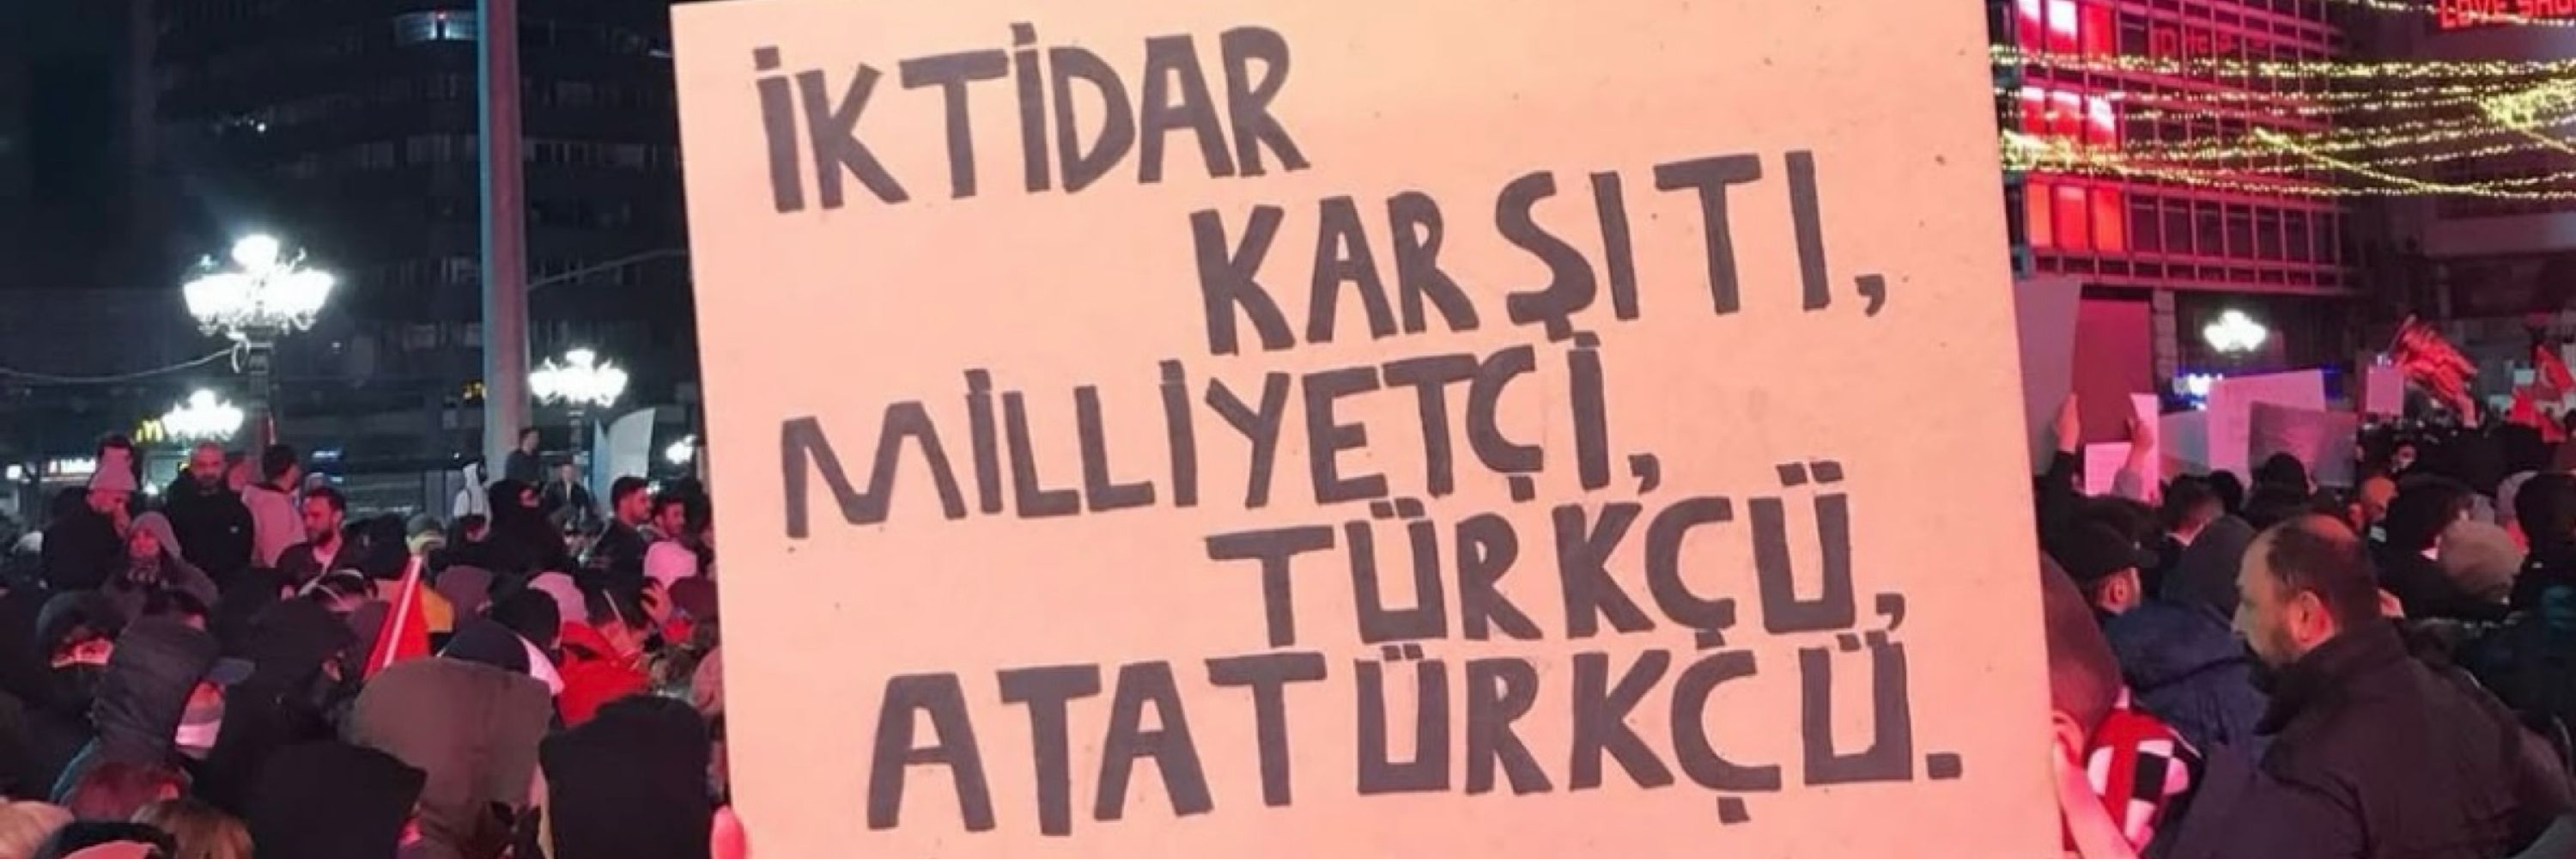 İKTİDAR
KARŞITI,
MİLLİYETÇİ,
TÜRKÇÜ,
ATATÜRKÇÜ.